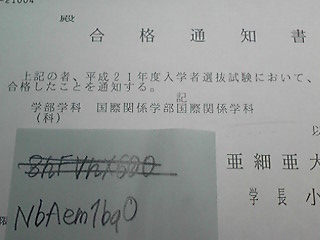 -21004
殿
合格通知書
上記の者、平成21年度入学者選抜試験において、
合格したことを通知する。
記
学部学科 国際関係学部国際関係学科
(科)
以
亜細亜大
学長 小
NbAem1bq0